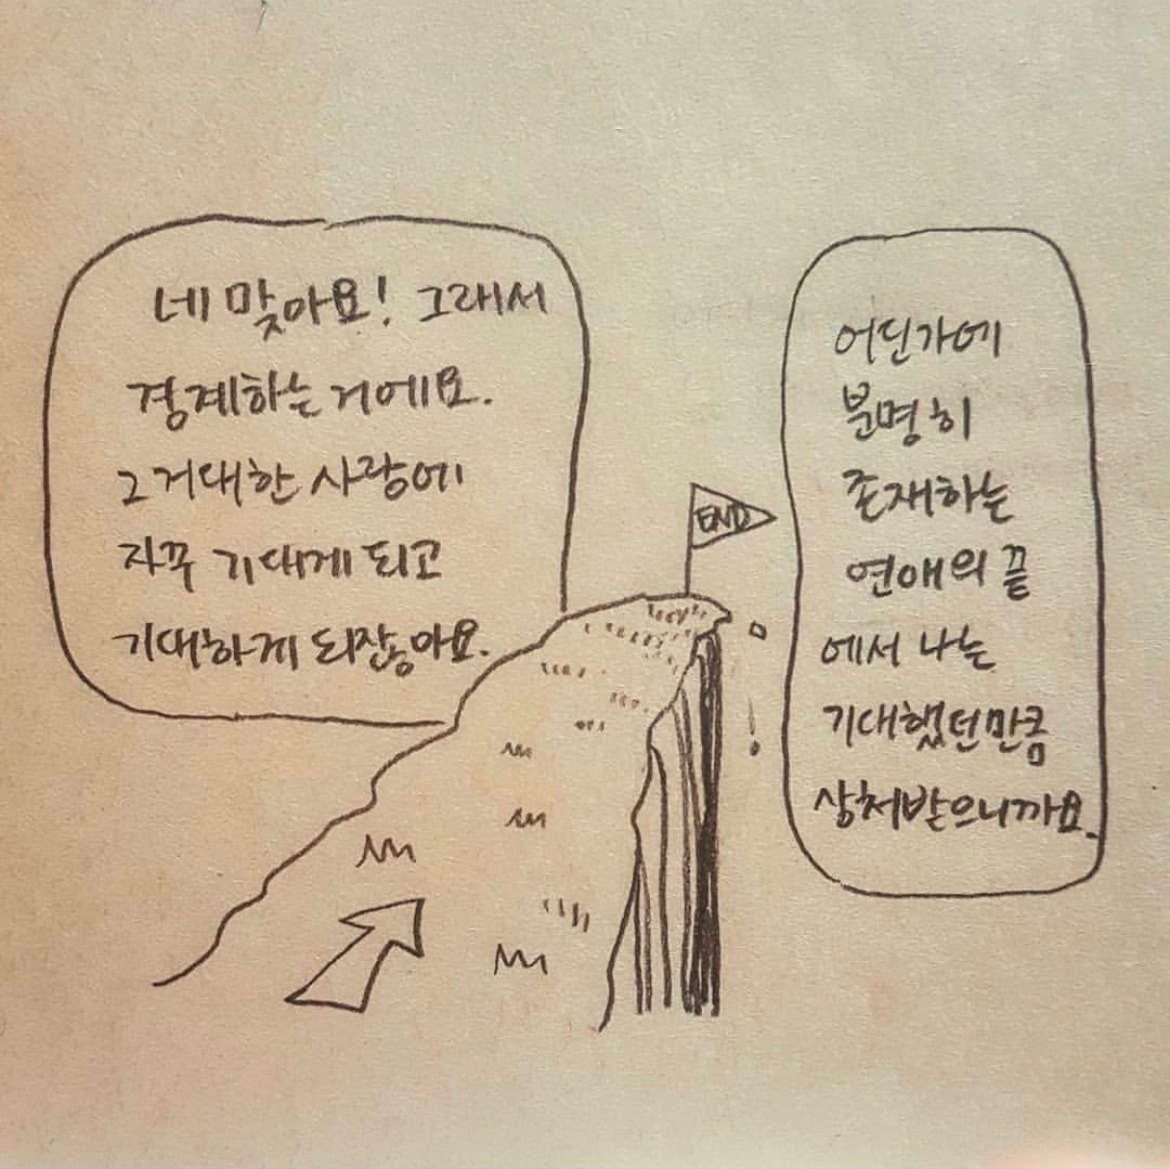 네 맞아요! 그래서
경계하는 거에요.
그 거대한 사랑에
자꾸 기대게 되고
기대하게 되잖아요.
END
어딘가에
분명히
존재하는
연애의 끝
에서 나는
기대했던만큼
상처받으니까요.